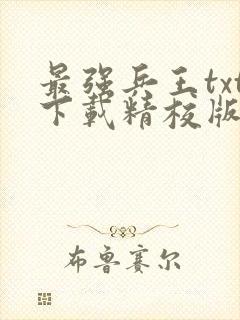 最强兵王txt
下载精校版
布鲁赛尔